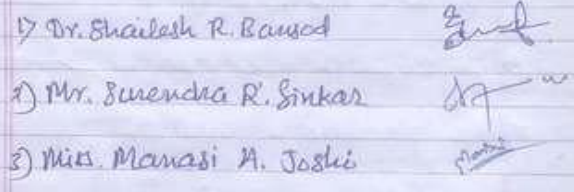 1) Dr. Shailesh R. Bansod
2) Mr. Surendra R. Sinkar
3) Miss. Manasi A. Joshi